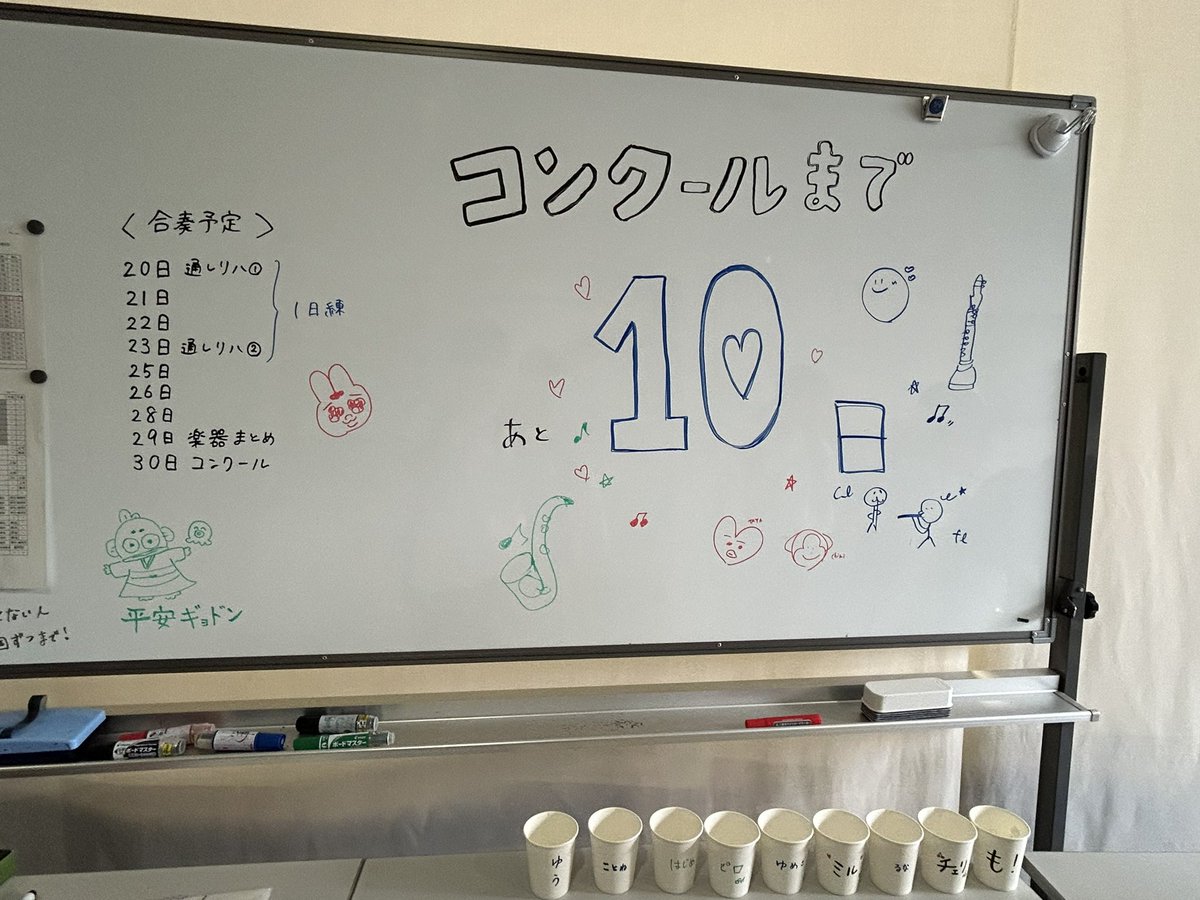 コンクールまで
あと 10日
〈 合奏予定 〉
20日 通しリハ①
21日
22日
23日 通しリハ②
1日練
25日
26日
28日
29日 楽器まとめ
30日 コンクール
平安ギョドン
ない人
ずつまで!
Cl
fl
ボードマスター
ボードマスター
ゆう
ことめ
はじめ
ピロ
ゆめ
ミル
るな
チェリ
も!